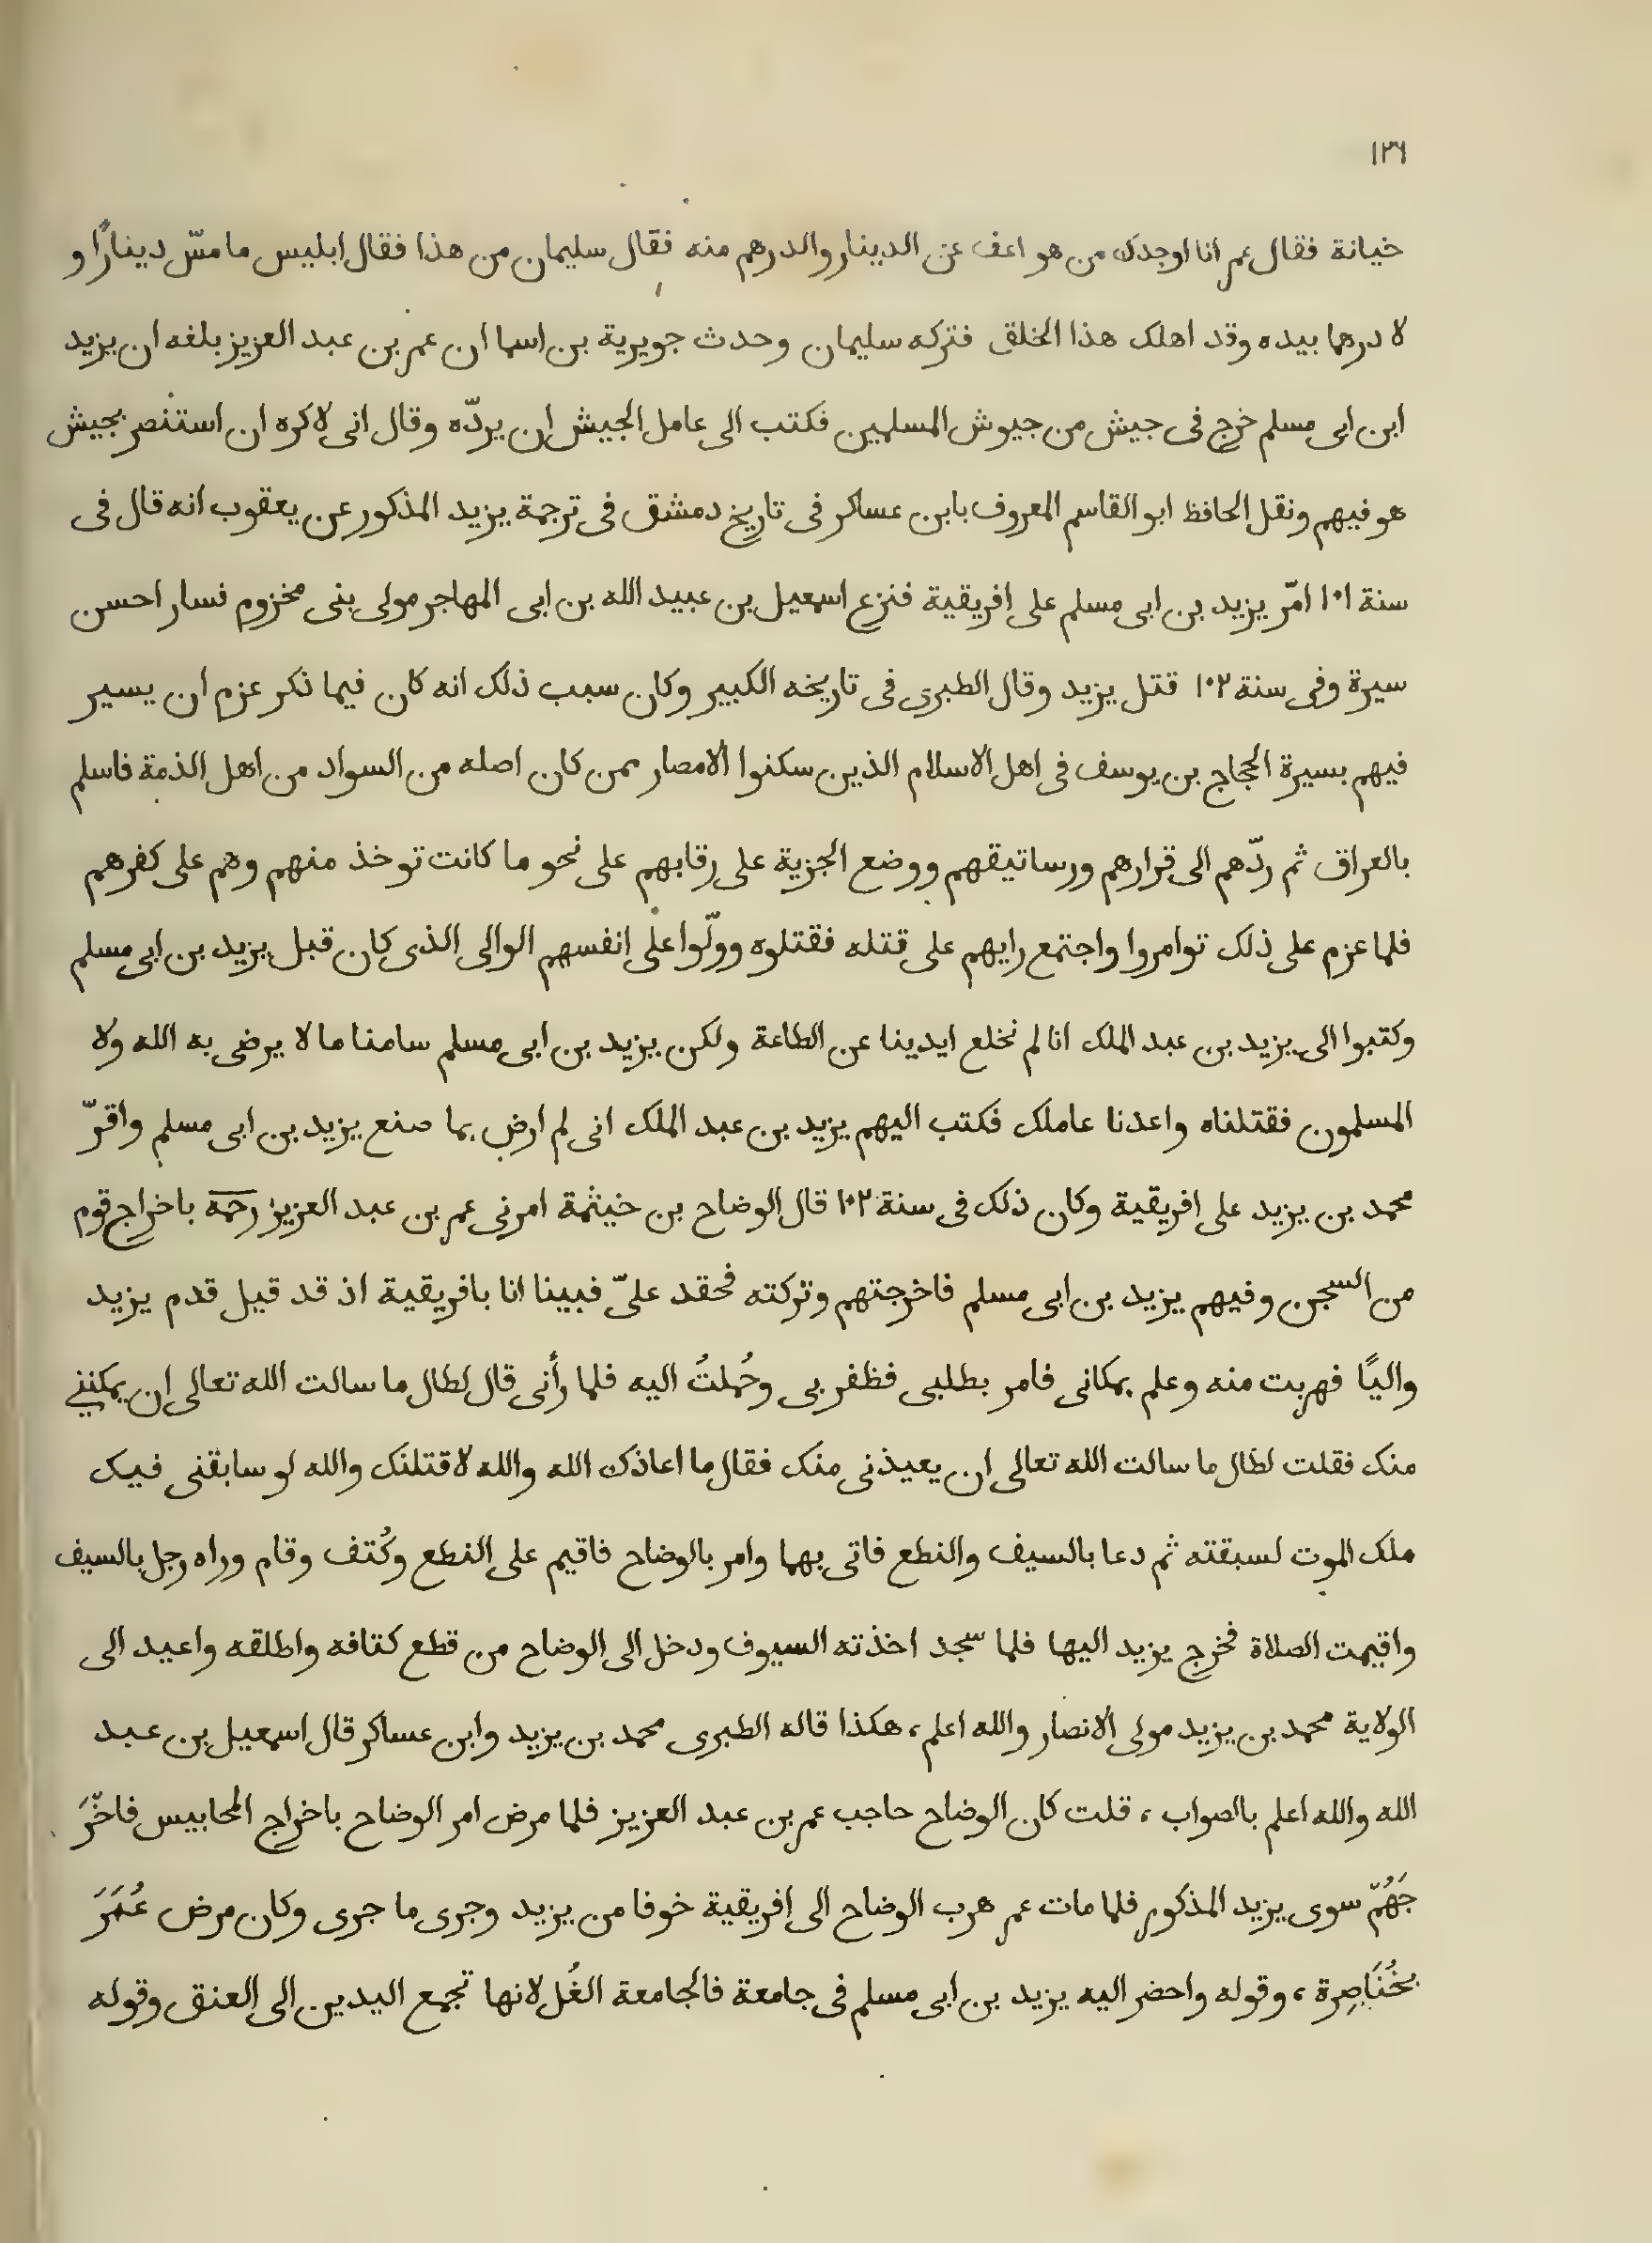 ١٢٦
خيانة فقال عمر انا اوجدك من هو اعف عن الدينار والدرهم منه فقال سليمان من هذا فقال ابليس ما مسّ دينارًا و
لا درهما بيده وقد اهلك هذا الخلق فتركه سليمان وحدث جويرية بن اسما ان عمر بن عبد العزيز بلغه ان يزيد
ابن ابى مسلم خرج فى جيش من جيوش المسلمين فكتب الى عامل الجيش ان يردّه وقال انى لاكره ان استنصر بجيش
هو فيهم ونقل الحافظ ابو القاسم المعروف بابن عساكر فى تاريخ دمشق فى ترجمة يزيد المذكور عن يعقوب انه قال فى
سنة ١٠١ امّر يزيد بن ابى مسلم على افريقية فنزع اسمعيل بن عبيد الله بن ابى المهاجر مولى بنى مخزوم فسار احسن
سيرة وفى سنة ١٠٢ قتل يزيد وقال الطبرى فى تاريخه الكبير وكان سبب ذلك انه كان فيما ذكر عزم ان يسير
فيهم بسيرة الحجاج بن يوسف فى اهل الاسلام الذين سكنوا الامصار ممن كان اصله من السواد من اهل الذمة فاسلم
بالعراق ثم ردّهم الى قرارهم ورساتيقهم ووضع الجزية على رقابهم على نحو ما كانت توخذ منهم وهم على كفرهم
فلما عزم على ذلك توامروا واجتمع رايهم على قتله فقتلوه وولّوا على انفسهم الوالى الذى كان قبل يزيد بن ابى مسلم
وكتبوا الى يزيد بن عبد الملك انا لم نخلع ايدينا عن الطاعة ولكن يزيد بن ابى مسلم سامنا ما لا يرضى به الله ولا
المسلمون فقتلناه واعدنا عاملك فكتب اليهم يزيد بن عبد الملك انى لم ارض بما صنع يزيد بن ابى مسلم واقرّ
محمد بن يزيد على افريقية وكان ذلك فى سنة ١٠٢ قال الوضاح بن خيثمة امرنى عمر بن عبد العزيز رحمه باخراج قوم
من السجن وفيهم يزيد بن ابى مسلم فاخرجتهم وتركته فحقد علىّ فبينا انا بافريقية اذ قد قيل قدم يزيد
واليًا فهربت منه وعلم بمكانى فامر بطلبى فظفر بى وحُملتُ اليه فلما رأنى قال لطال ما سالت الله تعالى ان يمكننى
منك فقلت لطال ما سالت الله تعالى ان يعيذنى منك فقال ما اعاذك الله والله لاقتلنك والله لو سابقنى فيك
ملك الموت لسبقته ثم دعا بالسيف والنطع فاتى بهما وامر بالوضاح فاقيم على النطع وكُتف وقام وراه رجل بالسيف
واقيمت الصلاة فخرج يزيد اليها فلما سجد اخذته السيوف ودخل الى الوضاح من قطع كتافه واطلقه واعيد الى
الولاية محمد بن يزيد مولى الانصار والله اعلم، هكذا قاله الطبرى محمد بن يزيد وابن عساكر قال اسمعيل بن عبد
الله والله اعلم بالصواب، قلت كان الوضاح حاجب عمر بن عبد العزيز فلما مرض امر الوضاح باخراج المحابيس فاخّرَ
جَهُمّ سوى يزيد المذكور فلما مات عمر هرب الوضاح الى افريقية خوفا من يزيد وجرى ما جرى وكان مرض عُمَرَ
بخُنَاصِرة، وقوله واحضر اليه يزيد بن ابى مسلم فى جامعة فالجامعة الغُل لانها تجمع اليدين الى العنق وقوله